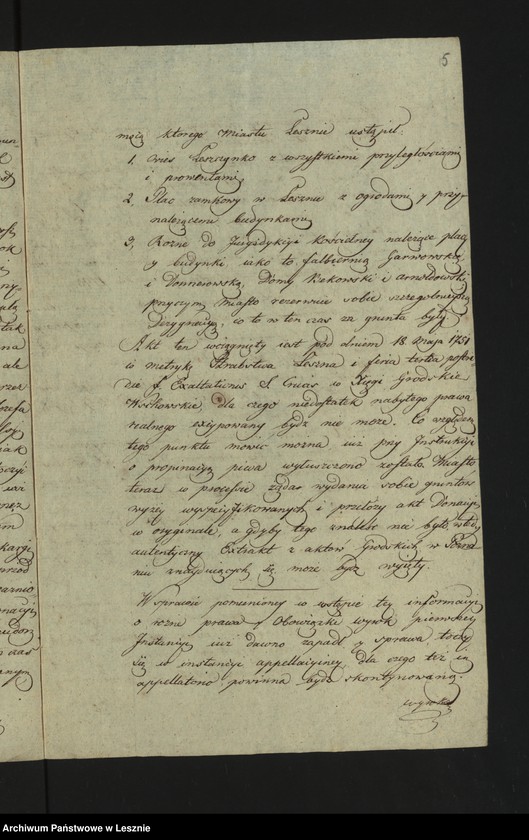 5
mocą którego miastu Lesznie ustąpił.
1, wieś Leszczynko z wszystkiemi przyległościami
i prowentami,
2, Plac zamkowy w Lesznie z ogrodami y przy-
należącemi budynkami,
3, Rozne do Jurysdykcyi kościelney należące place
y budynki, iako to, falbiernią Garnowską,
i Domy Rakowski i
przyczym Miasto rezerwuie sobie szczegulnieyszą
Designacyą, co to w ten czas za gunta były.
Akt ten wciągnięty iest pod dniem 18 Maja 1751
w metrykę Hrabstwa Leszna i feria tertia post
f. Exaltationis S Crucis w Xięgi Grodskie
Wschowskie, dla czego niedostatek nabytego prawa
realnego excypowany bydz nie może. Co względem
tego punktu mowić można iuż przy Instrukcyi
o propinacyą piwa wyłuszczono zostało. Miasto
teraz w processie żądać wydania sobie gruntów
wyżey wyspecyfikowanych i przełoży akt Donacyi
w oryginale, a gdyby tego znaleść nie było
autentyczny Extrakt z aktow Grodskich w Pozna-
niu znayduiących się może bydz wyięty.
W sprawie pomienioney w wstępie tey informacyi
o rozne prawa y Obowiązki wyrok pierwszey
Instancyi iuż dawno zapadł y sprawa toczy
się w instancyi appellacyiney, dla czego też in
appellatorio powinna bydz skontynowaną.